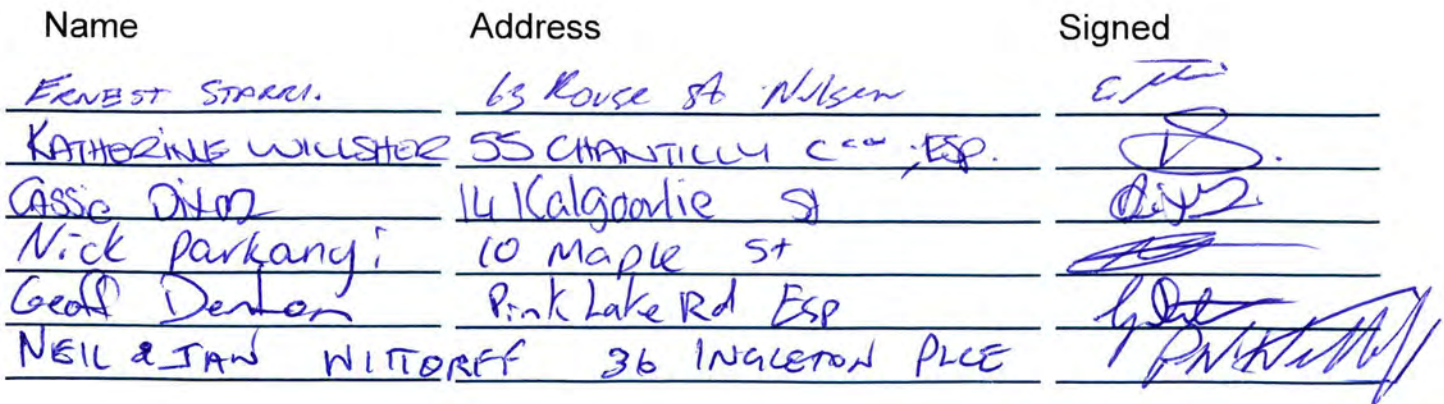 Name Address Signed
ERNEST STARRI. 63 Rouse St Nulsen
KATHERINE WILLSHER 55 CHANTILLY ESP.
Cassie 14 Kalgoorlie St
Nick Parkanyi 10 Maple St
Geoff Denton Pink Lake Rd Esp
NEIL & JAN WITTDREFF 36 INGLETON PLCE